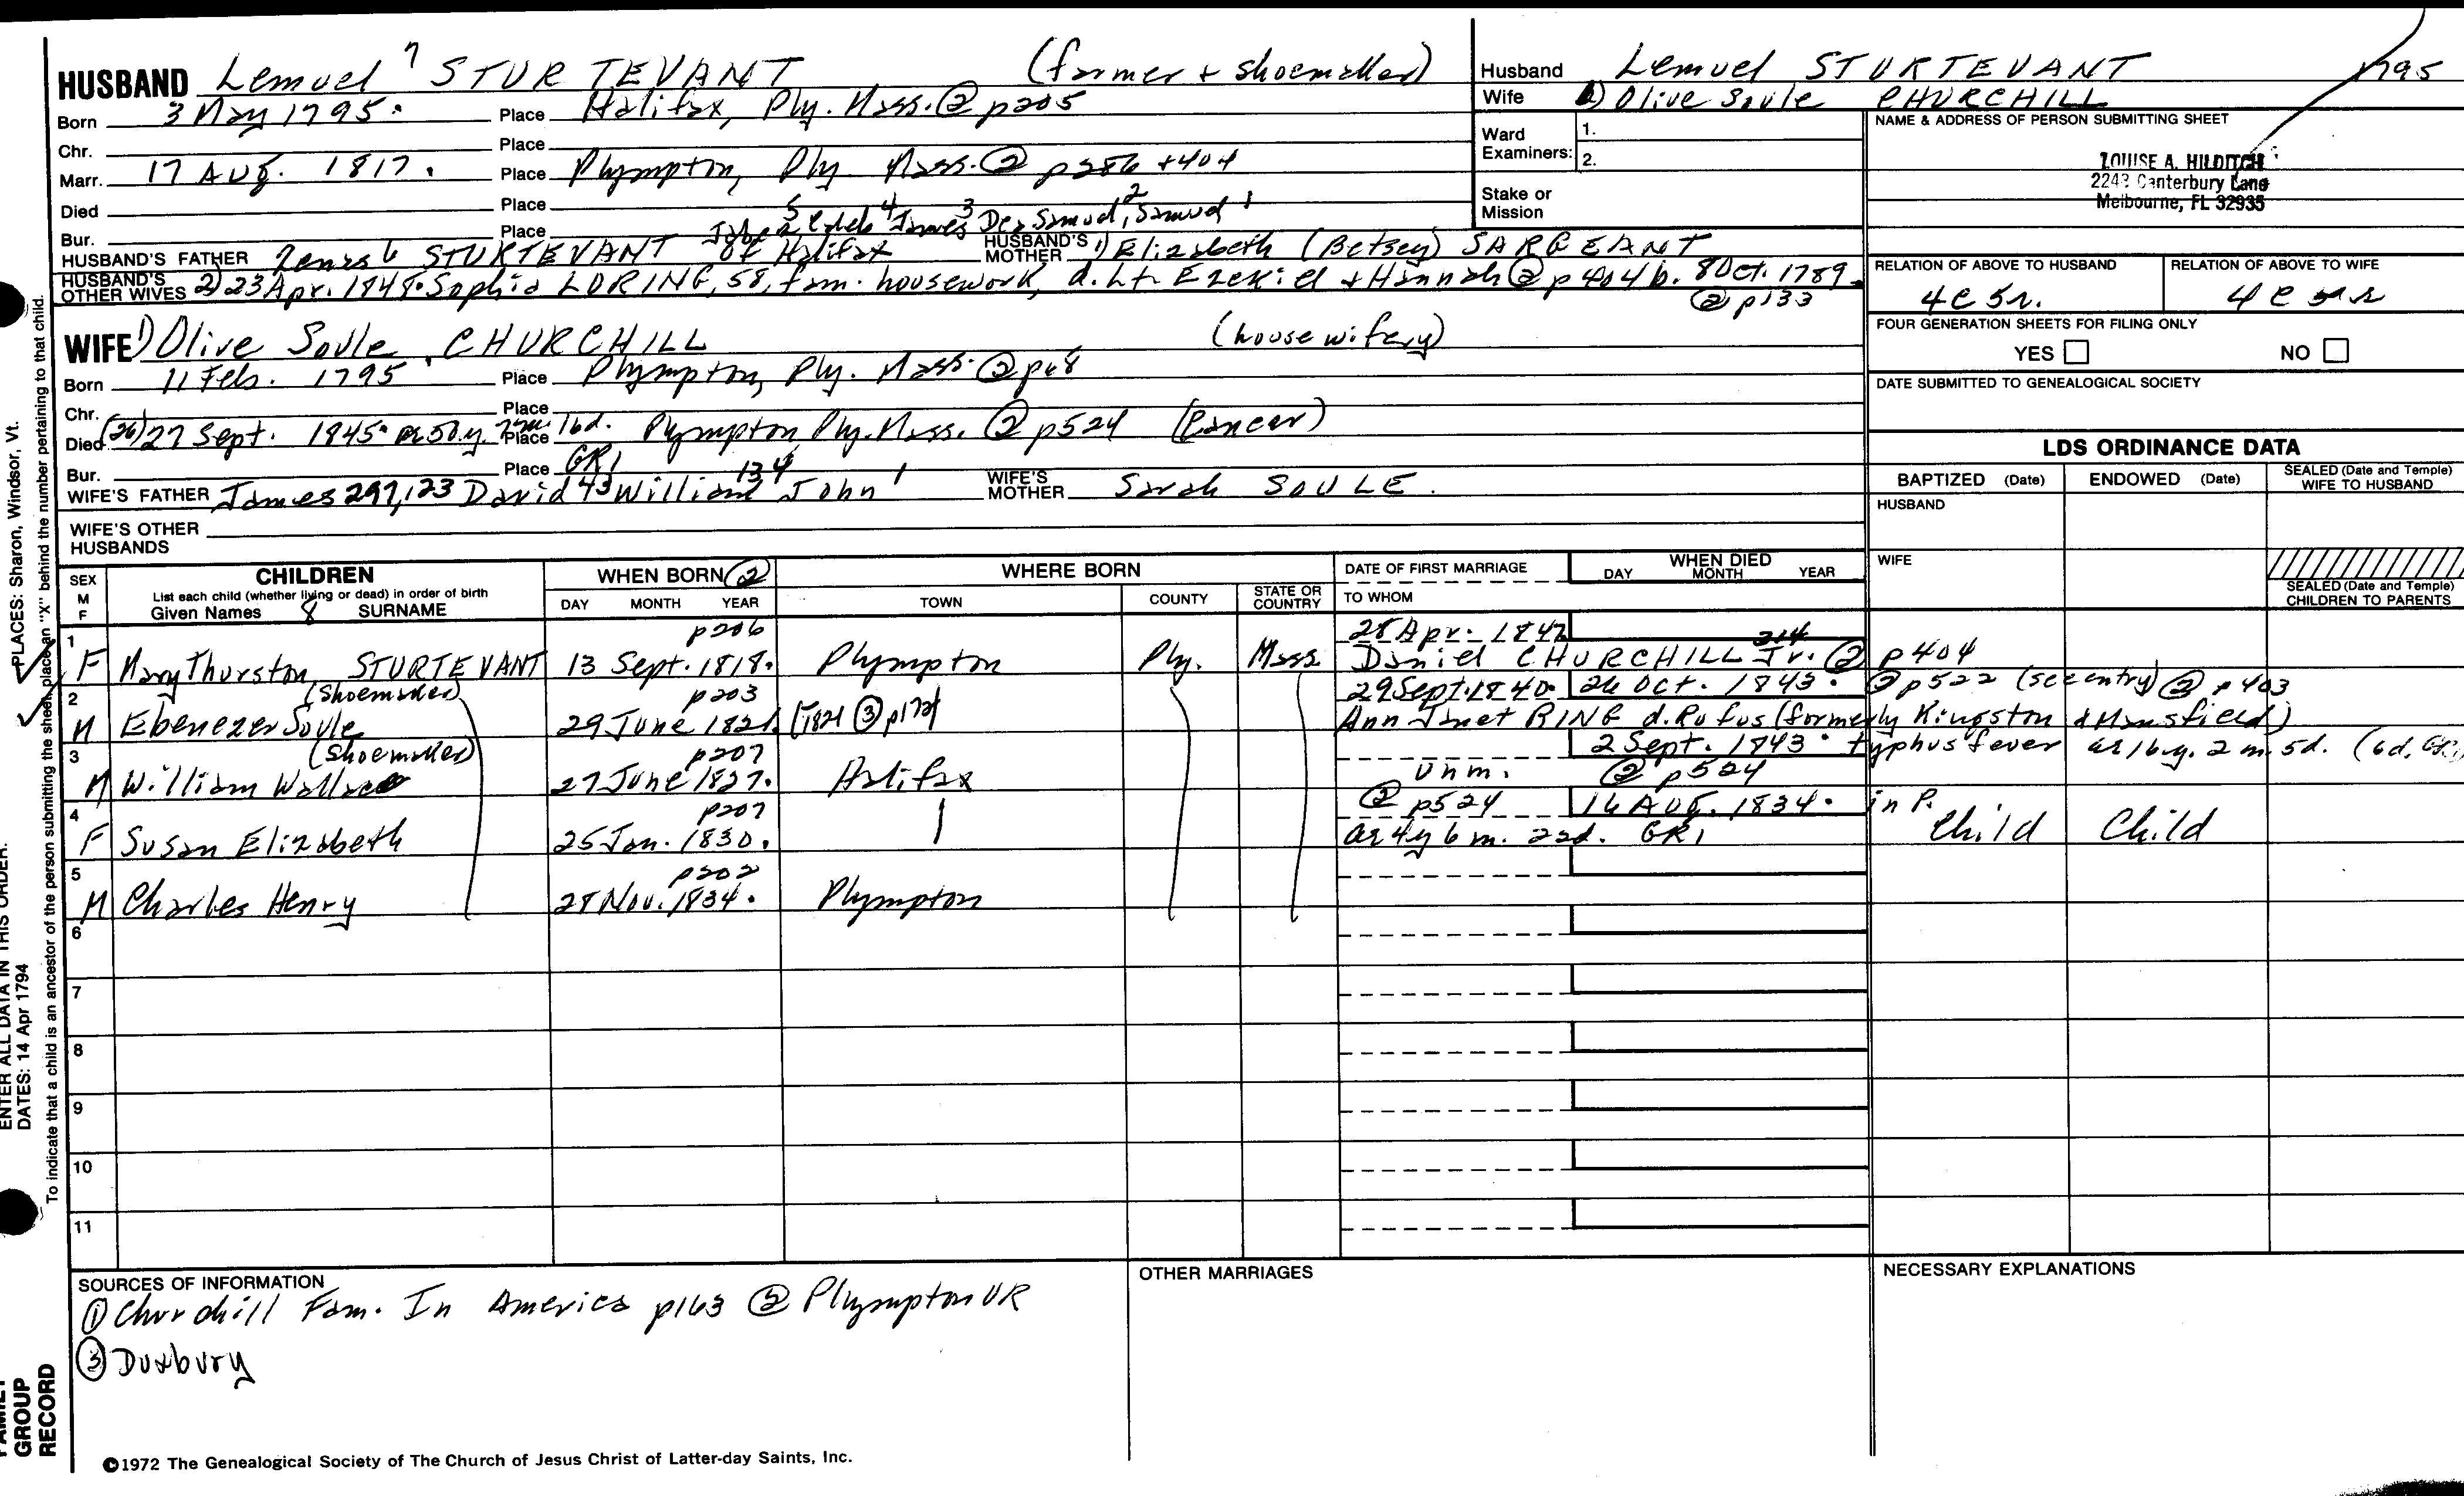 HUSBAND Lemuel 7 STURTEVANT (farmer + shoemaker)
Born 3 May 1795. Place Halifax, Ply. Mass. ② p205
Chr. Place
Marr. 17 Aug. 1817. Place Plympton, Ply. Mass. ② p386 + 404
Died Place
Bur. Place
5 4 James 3 Samuel, 2 Samuel 1
HUSBAND'S FATHER Zenas 6 STURTEVANT of Halifax HUSBAND'S MOTHER 1) Elizabeth (Betsey) SARGEANT
HUSBAND'S OTHER WIVES 2) 23 Apr. 1848. Sophia LORING, 58, fam. housework, d. Lt. Ezekiel + Hannah ② p404 b. 8 Oct. 1789.
② p133
WIFE 1) Olive Soule CHURCHILL (housewifery)
Born 11 Feb. 1795 Place Plympton, Ply. Mass. ② p68
Chr. Place
Died (26) 27 Sept. 1845. ae 50 y. 7 m. 16 d. Place Plympton, Ply. Mass. ② p524 (Cancer)
Bur. Place GR1
WIFE'S FATHER James 297, 123 David 43 William 13 4 John 1 WIFE'S MOTHER Sarah SOULE.
WIFE'S OTHER HUSBANDS
Husband Lemuel STURTEVANT 1795
Wife 1) Olive Soule CHURCHILL
Ward Examiners: 1.
2.
Stake or Mission
NAME & ADDRESS OF PERSON SUBMITTING SHEET
LOUISE A. HILDITCH
2243 Canterbury Lane
Melbourne, FL 32935
RELATION OF ABOVE TO HUSBAND RELATION OF ABOVE TO WIFE
4c 5r. 4c 5r
FOUR GENERATION SHEETS FOR FILING ONLY
YES NO
DATE SUBMITTED TO GENEALOGICAL SOCIETY
LDS ORDINANCE DATA
BAPTIZED (Date) ENDOWED (Date) SEALED (Date and Temple) WIFE TO HUSBAND
HUSBAND
WIFE
SEALED (Date and Temple) CHILDREN TO PARENTS
SEX M F
CHILDREN
List each child (whether living or dead) in order of birth
Given Names 8 SURNAME
WHEN BORN ②
DAY MONTH YEAR
WHERE BORN
TOWN COUNTY STATE OR COUNTRY
DATE OF FIRST MARRIAGE
TO WHOM
WHEN DIED
DAY MONTH YEAR
1 p206 28 Apr. 1842 314
F Mary Thurston STURTEVANT 13 Sept. 1818. Plympton Ply. Mass. Daniel CHURCHILL Jr. ② p404
2 (shoemaker) p203 29 Sept. 1840. 26 Oct. 1843. ② p522 (see entry) ② p403
M Ebenezer Soule 29 June 1821. [1821 ③ p172] Ann Janet RING d. Rufus (formerly Kingston & Mansfield)
3 (shoemaker) p207 2 Sept. 1843. typhus fever ae 16 y. 2 m. 5d. (6d. GR1)
M William Wallace 27 June 1827. Halifax Unm. ② p524
4 p207 ② p524 16 Aug. 1834. in P.
F Susan Elizabeth 25 Jan. 1830. ae 4y 6 m. 22d. GR1 Child Child
5 p202
M Charles Henry 28 Nov. 1834. Plympton
6
7
8
9
10
11
SOURCES OF INFORMATION
① Churchill Fam. In America p163 ② Plympton VR
③ Duxbury
OTHER MARRIAGES
NECESSARY EXPLANATIONS
©1972 The Genealogical Society of The Church of Jesus Christ of Latter-day Saints, Inc.
PLACES: Sharon, Windsor, Vt.
ENTER ALL DATA IN THIS ORDER:
DATES: 14 Apr 1794
To indicate that a child is an ancestor of the person submitting the sheet, place an "X" behind the number pertaining to that child.
FAMILY GROUP RECORD